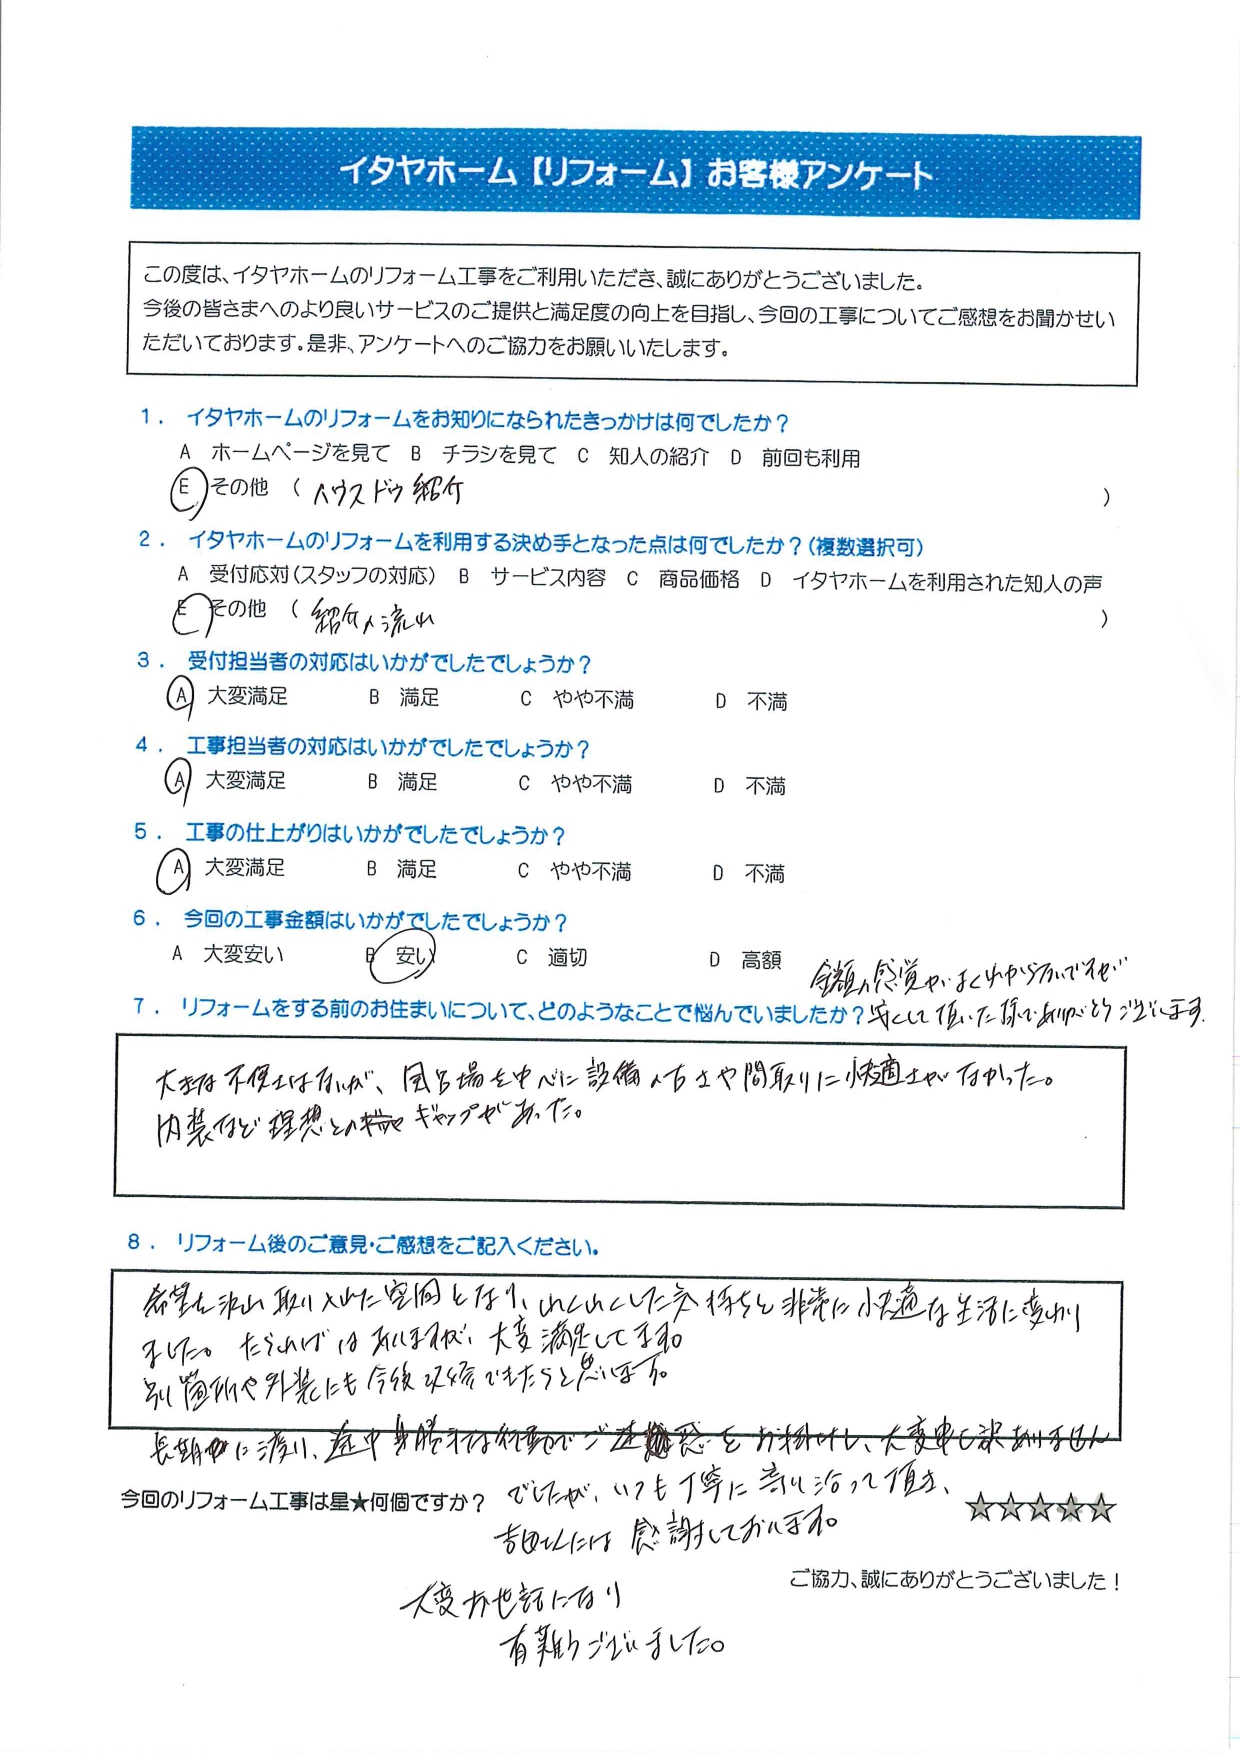 イタヤホーム【リフォーム】お客様アンケート
この度は、イタヤホームのリフォーム工事をご利用いただき、誠にありがとうございました。
今後の皆さまへのより良いサービスのご提供と満足度の向上を目指し、今回の工事についてご感想をお聞かせい
ただいております。是非、アンケートへのご協力をお願いいたします。
1． イタヤホームのリフォームをお知りになられたきっかけは何でしたか？
A ホームページを見て B チラシを見て C 知人の紹介 D 前回も利用
E その他 （ ハウスドゥ紹介 ）
2． イタヤホームのリフォームを利用する決め手となった点は何でしたか？（複数選択可）
A 受付応対（スタッフの対応） B サービス内容 C 商品価格 D イタヤホームを利用された知人の声
E その他 （ 紹介の流れ ）
3． 受付担当者の対応はいかがでしたでしょうか？
A 大変満足 B 満足 C やや不満 D 不満
4． 工事担当者の対応はいかがでしたでしょうか？
A 大変満足 B 満足 C やや不満 D 不満
5． 工事の仕上がりはいかがでしたでしょうか？
A 大変満足 B 満足 C やや不満 D 不満
6． 今回の工事金額はいかがでしたでしょうか？
A 大変安い B 安い C 適切 D 高額
金額の感覚がよくわからないですが
安くして頂いた様でありがとうございます。
7． リフォームをする前のお住まいについて、どのようなことで悩んでいましたか？
大きな不便さはないが、風呂場を中心に設備の古さや間取りに快適さがなかった。
内装など理想とのギャップがあった。
8． リフォーム後のご意見・ご感想をご記入ください。
希望を沢山取り入れた空間となり、わくわくした気持ちと非常に快適な生活に変わり
ました。たられば はありますが、大変満足してます。
別箇所や外装にも今後改修できたらと思います。
長期に渡り、途中身勝手な行動でご迷惑をお掛けし、大変申し訳ありません
でしたが、いつも丁寧に寄り沿って頂き、
今回のリフォーム工事は星★何個ですか？ ☆☆☆☆☆
吉田さんには感謝しております。
ご協力、誠にありがとうございました！
大変お世話になり
有難うございました。